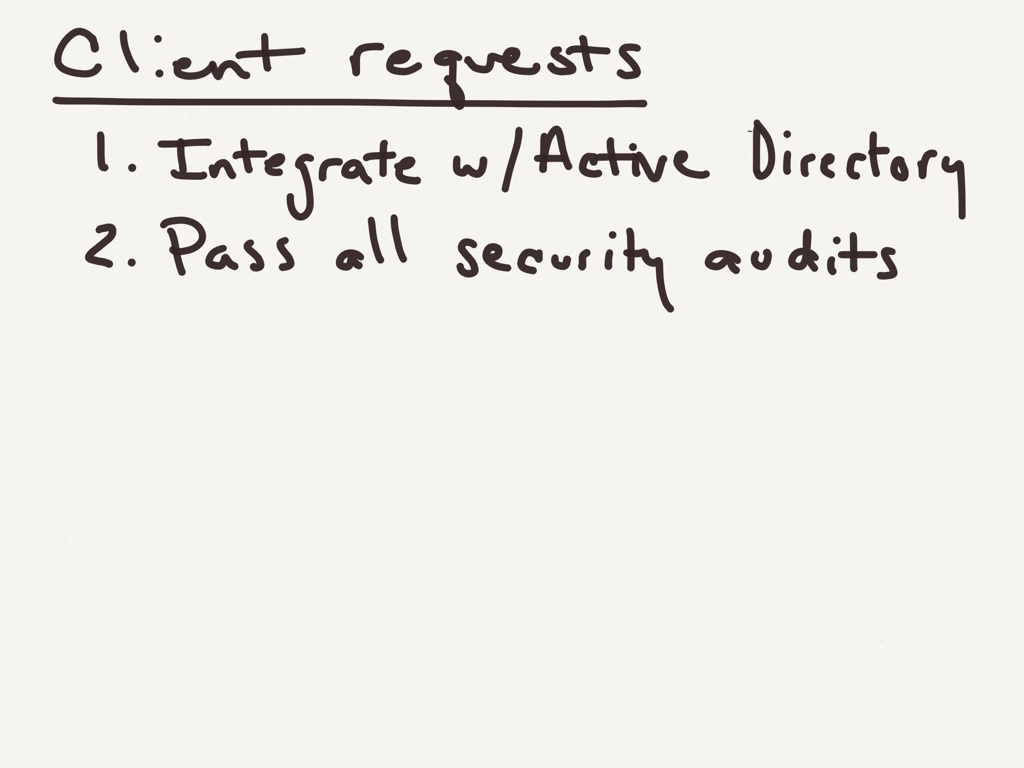 Client requests
1. Integrate w/Active Directory
2. Pass all security audits